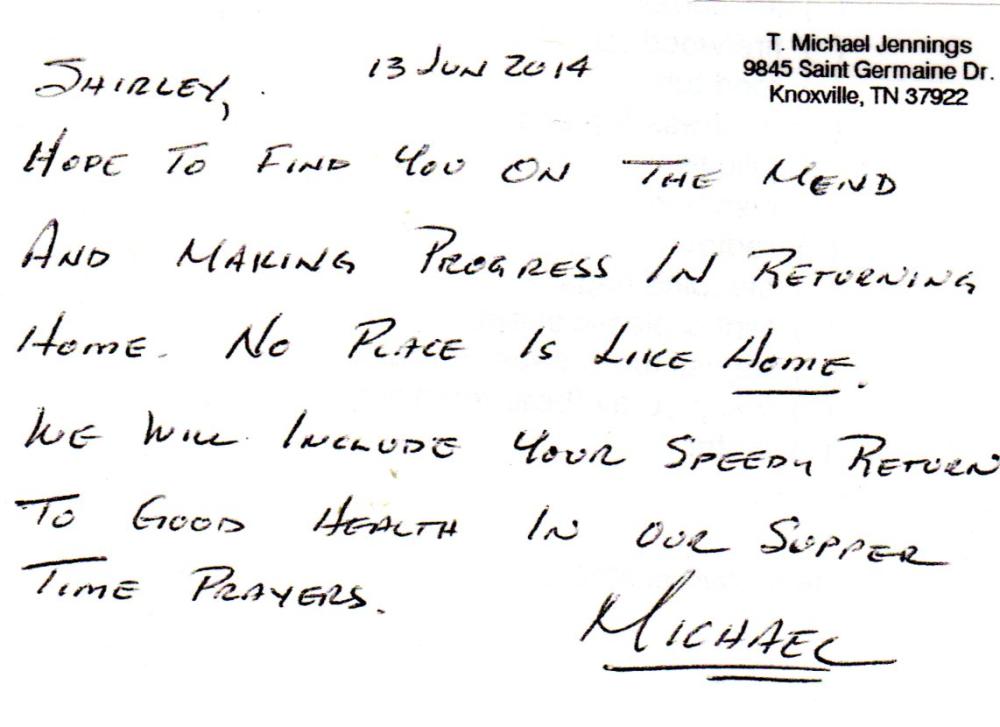 T. Michael Jennings
9845 Saint Germaine Dr.
Knoxville, TN 37922
13 JUN 2014
SHIRLEY,
HOPE TO FIND YOU ON THE MEND
AND MAKING PROGRESS IN RETURNING
HOME. NO PLACE IS LIKE HOME.
WE WILL INCLUDE YOUR SPEEDY RETURN
TO GOOD HEALTH IN OUR SUPPER
TIME PRAYERS.
MICHAEL